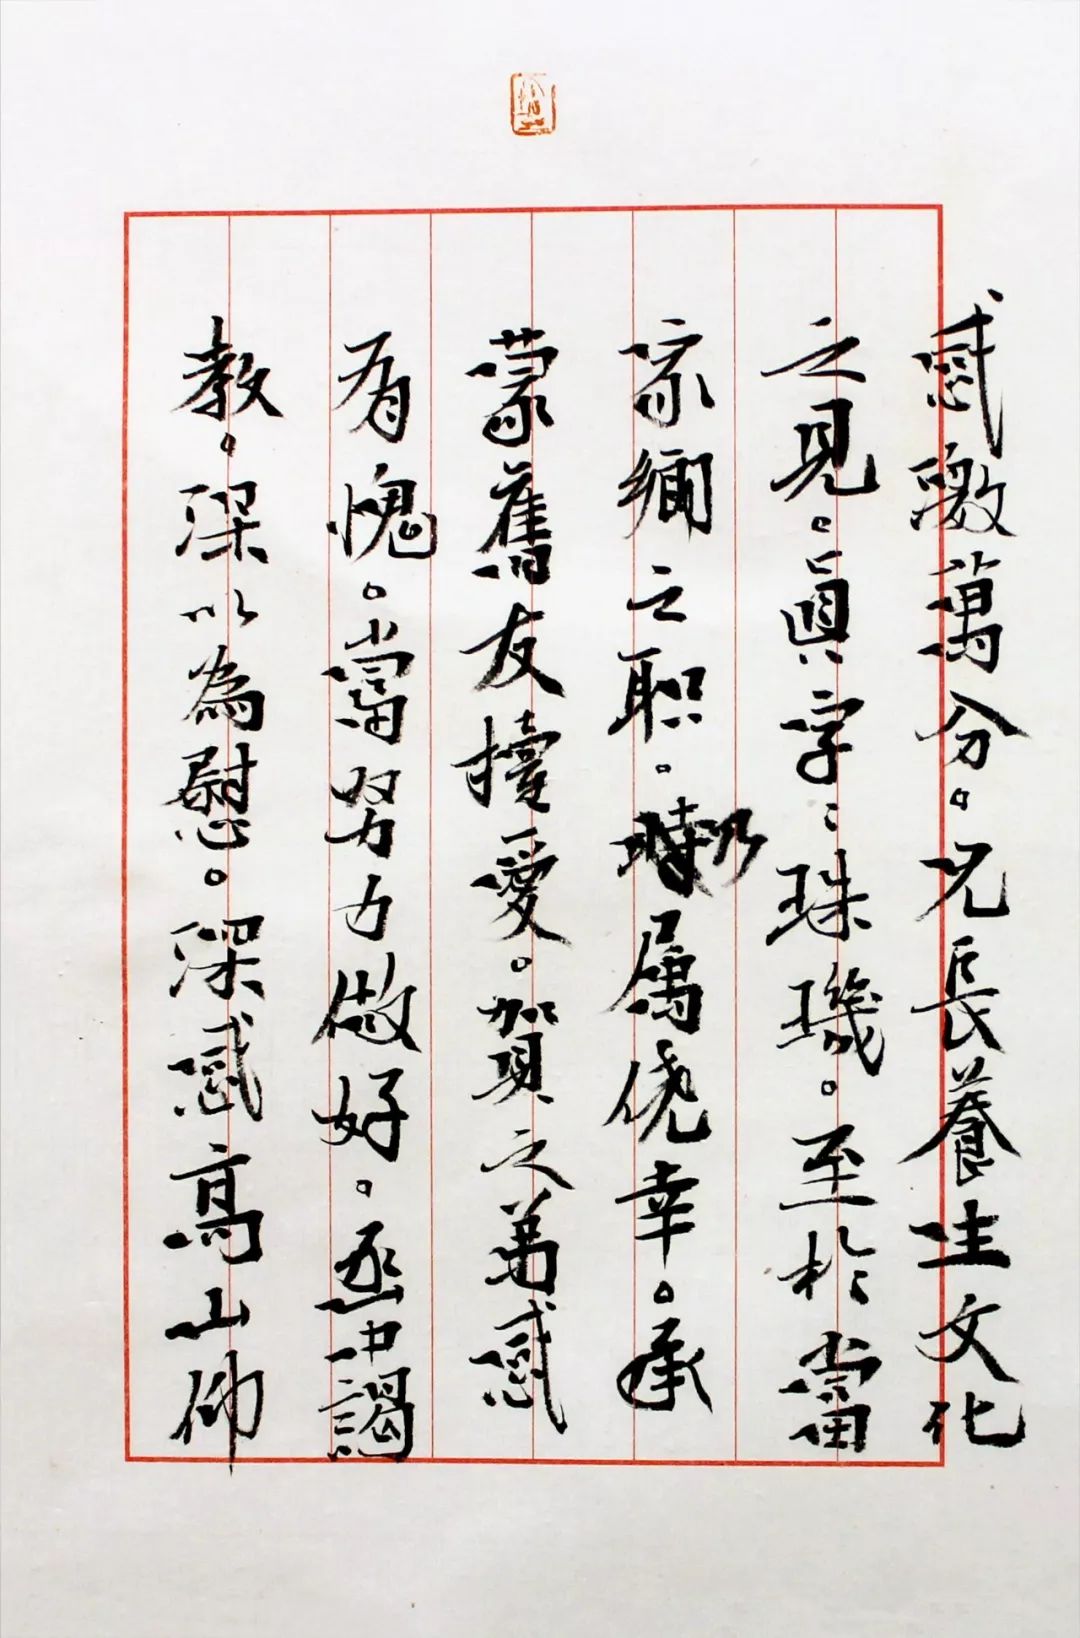 感激萬分。兄長養生文化
之見。眞字〻珠璣。至於當
家之职。仍屬僥幸。承
蒙舊友擡愛。賀之弟感
有愧。當努力做好。函中謁
教。深以為慰。深感高山仰